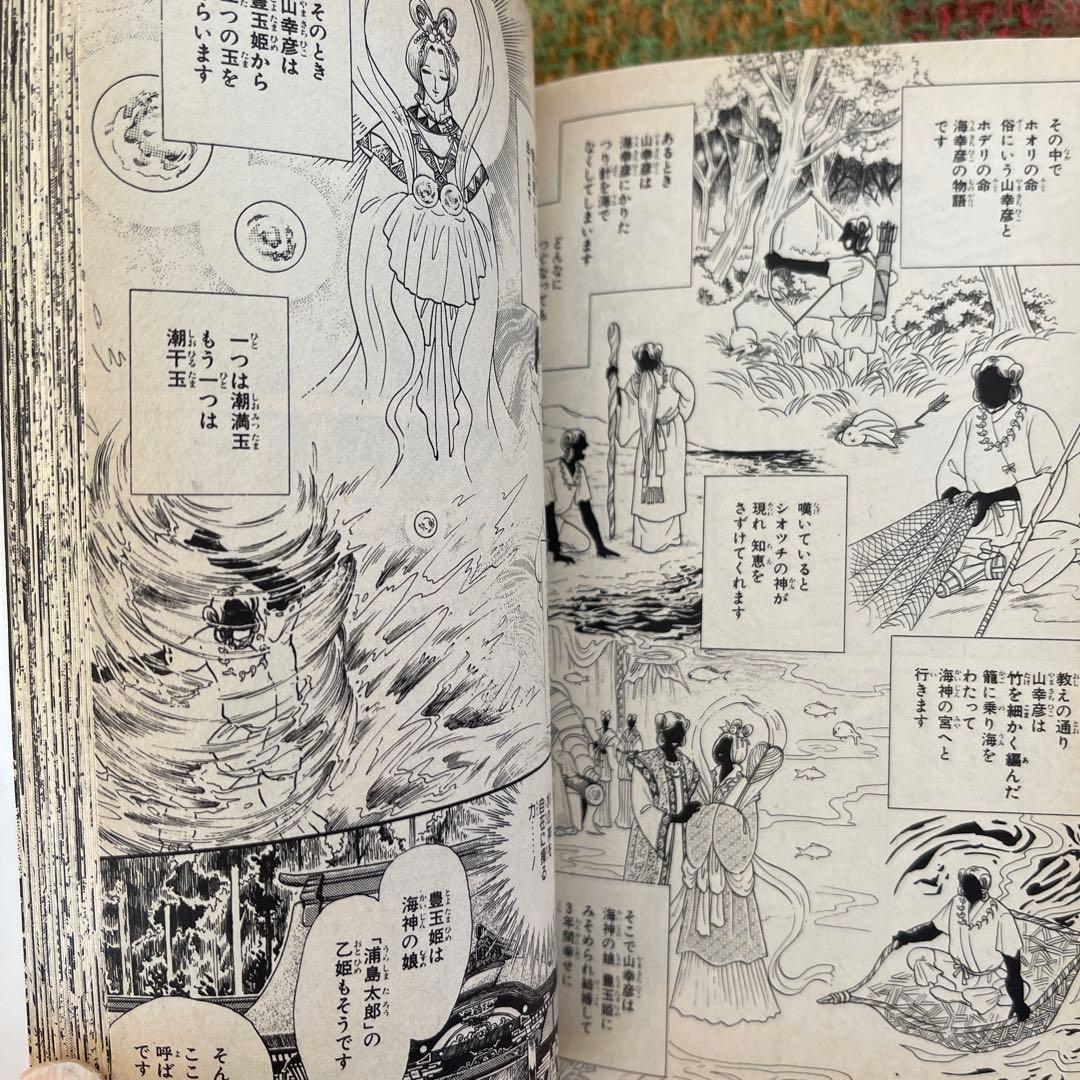 その中で
ホオリの命
俗にいう山幸彦と
ホデリの命
海幸彦の物語
です
あるとき
山幸彦は
海幸彦にかりた
つり針を海で
なくしてしまいます
どんなに
嘆いていると
シオツチの神が
現れ 知恵を
さずけてくれます
教えの通り
山幸彦は
竹を細かく編んだ
籠に乗り海を
わたって
海神の宮へと
行きます
そこで山幸彦は
海神の娘 豊玉姫に
みそめられ結婚して
3年間幸せに
そのとき
山幸彦は
豊玉姫から
二つの玉を
らいます
一つは潮満玉
もう一つは
潮干玉
力…!
豊玉姫は
海神の娘
「浦島太郎」の
乙姫もそうです
そん
ここ
呼ば
です